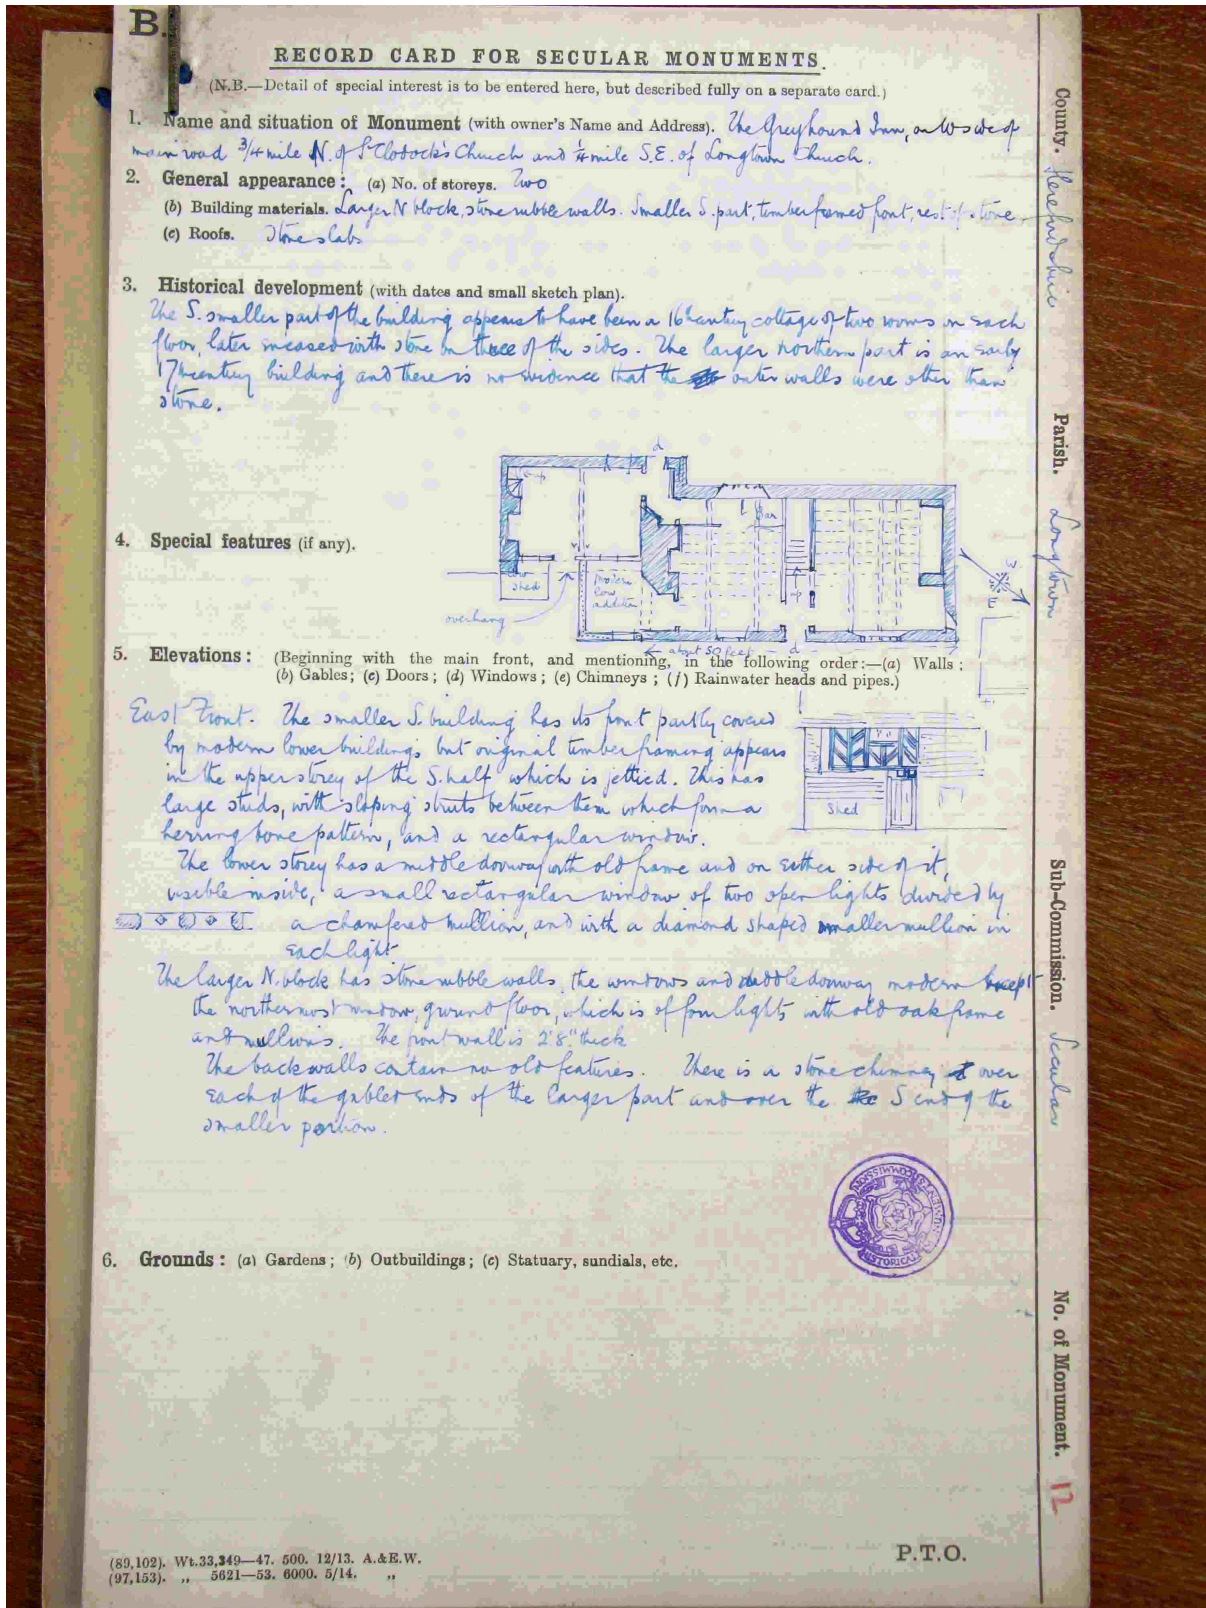 B.
RECORD CARD FOR SECULAR MONUMENTS.
(N.B.—Detail of special interest is to be entered here, but described fully on a separate card.)
1. Name and situation of Monument (with owner's Name and Address). The Greyhound Inn, on W side of
main road 3/4 mile N. of St Clodock's Church and 1/4 mile S.E. of Longtown Church.
2. General appearance: (a) No. of storeys. Two
(b) Building materials. Larger N block, stone rubble walls. Smaller S. part, timber framed front, rest of stone.
(c) Roofs. Stone slabs
3. Historical development (with dates and small sketch plan).
The S. smaller part of the building appears to have been a 16th century cottage of two rooms on each
floor, later encased with stone on three of the sides. The larger northern part is an early
17th century building and there is no evidence that the outer walls were other than
stone.
d
Bar
up
4. Special features (if any).
shed
modern
low
addition
overhang
about 50 feet
d
5. Elevations: (Beginning with the main front, and mentioning, in the following order:—(a) Walls;
(b) Gables; (c) Doors; (d) Windows; (e) Chimneys; (f) Rainwater heads and pipes.)
East Front. The smaller S. building has its front partly covered
by modern lower buildings but original timber framing appears
in the upper storey of the S. half which is jettied. This has
large studs, with sloping struts between them which form a
herring bone pattern, and a rectangular window.
Shed
The lower storey has a middle doorway with old frame and on either side of it,
visible inside, a small rectangular window of two open lights divided by
a chamfered mullion, and with a diamond shaped smaller mullion in
each light
The larger N. block has stone rubble walls, the windows and middle doorway modern except
the northernmost window, ground floor, which is of four lights with old oak frame
and mullions. The front wall is 2' 8" thick
The back walls contain no old features. There is a stone chimney over
each of the gabled ends of the larger part and over the S end of the
smaller portion.
6. Grounds: (a) Gardens; (b) Outbuildings; (c) Statuary, sundials, etc.
(89,102). Wt.33,349—47. 500. 12/13. A.&E.W.
(97,153). ,, 5621—53. 6000. 5/14. ,,
P.T.O.
County. Herefordshire
Parish. Longtown
Sub-Commission. Secular
No. of Monument. 12
HISTORICAL MONUMENTS COMMISSION